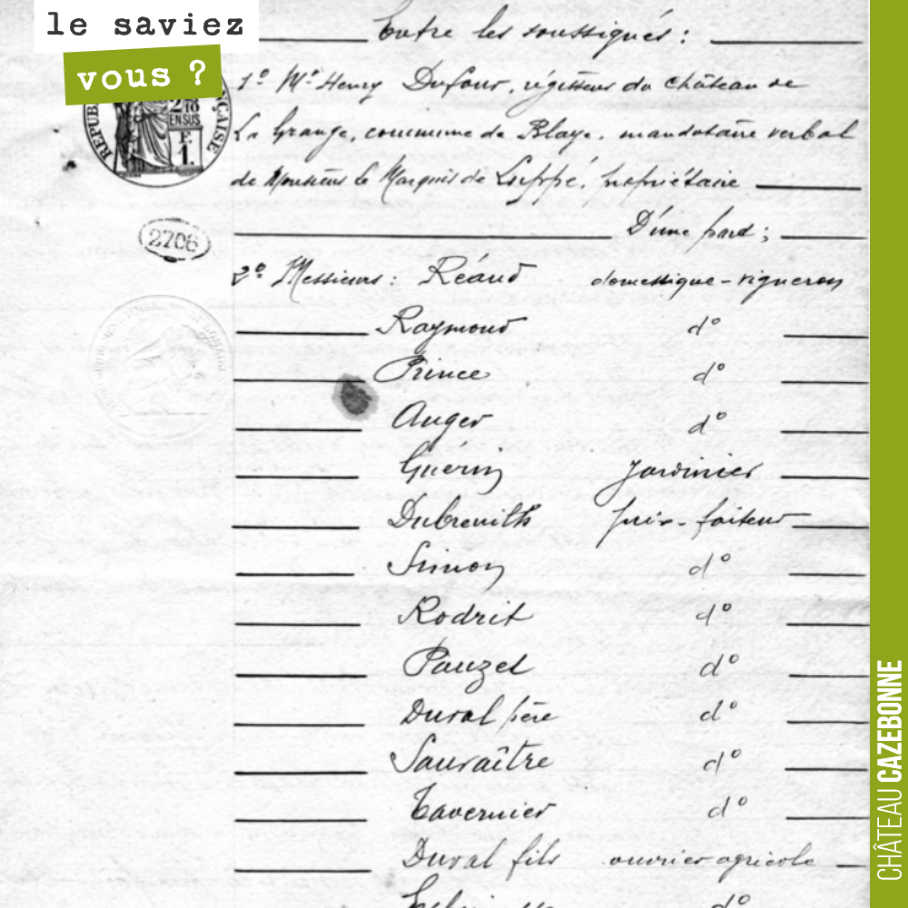 le saviez
vous ?
Entre les soussignés :
1º Mr Henry Dufour, régisseur du château de
La Grange, commune de Blaye, mandataire verbal
de Monsieur le Marquis de Luppé, propriétaire
D'une part ;
2º Messieurs : Réaud domestique-vigneron
Raymond dº
Prince dº
Auger dº
Guérin Jardinier
Dubreuilh prix-faiteur
Simon dº
Rodrit dº
Pauzet dº
Duval père dº
Sauvaître dº
Tavernier dº
Duval fils ouvrier agricole
dº
2706
CHÂTEAU CAZEBONNE